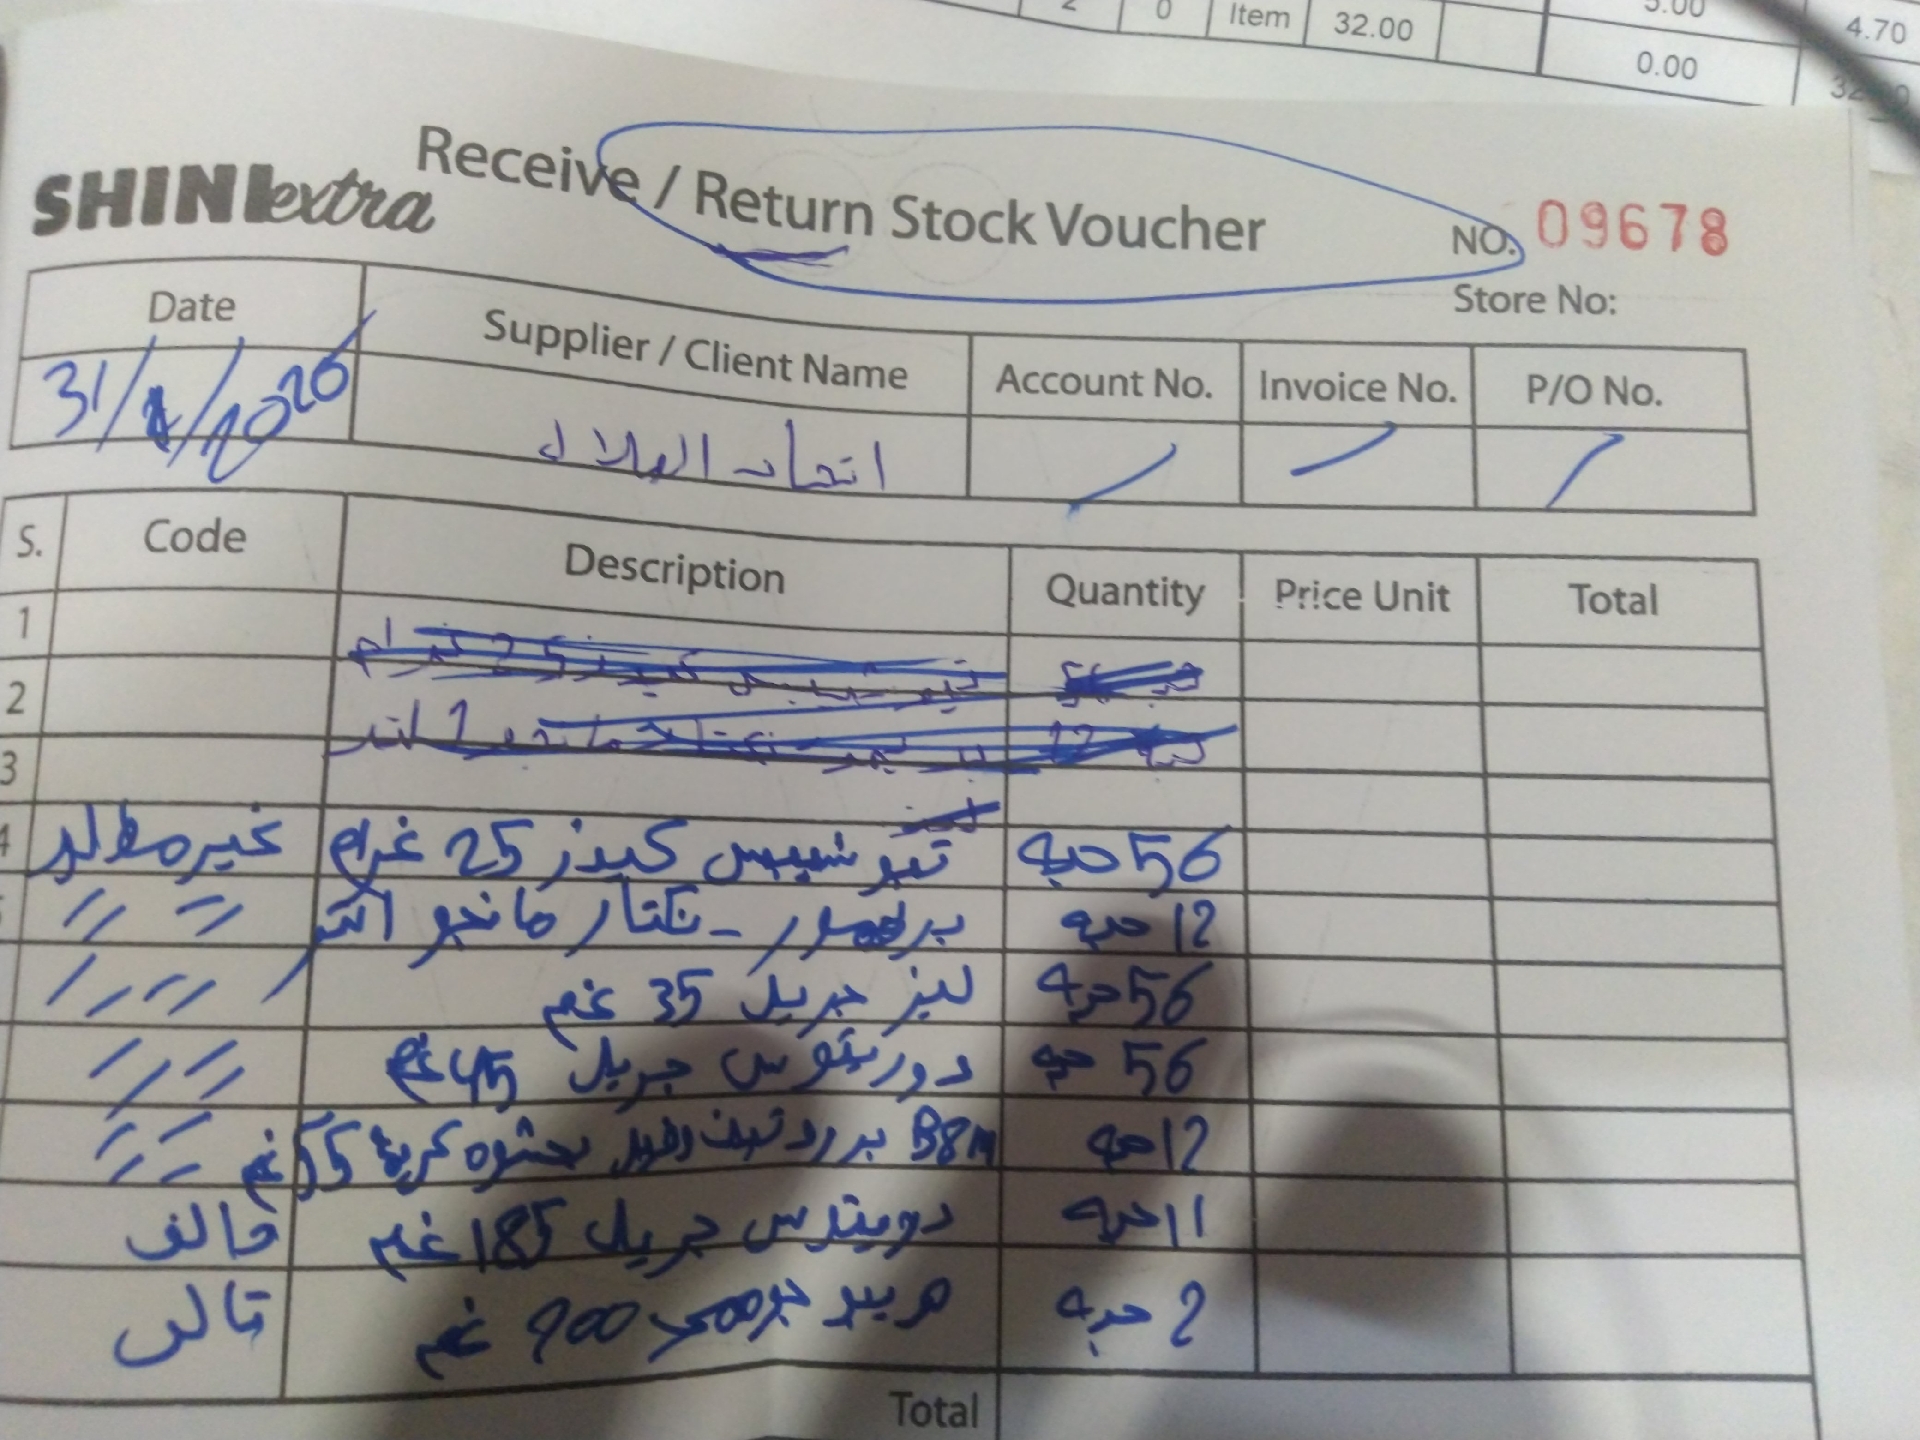 2 0 Item 32.00 5.00 4.70
0.00
SHINI extra
Receive / Return Stock Voucher
NO. 09678
Store No:
Date Supplier / Client Name Account No. Invoice No. P/O No.
31/1/2026 اتحاد الهلال
S. Code Description Quantity Price Unit Total
1
2
3
4 غير مطلوب تيو شيبس كيدز 25 غرام 56 حبه
〃 〃 نكتار مانجو 12 حبه
〃 〃 ليز جريل 35 غم 56 حبه
〃 〃 دوريتوس جريل 45 غم 56 حبه
〃 〃 B&M بحشوه كريمة 55 غم 12 حبه
تالف جريل 185 غم 11 حبه
تالف 900 غم 2 حبه
Total